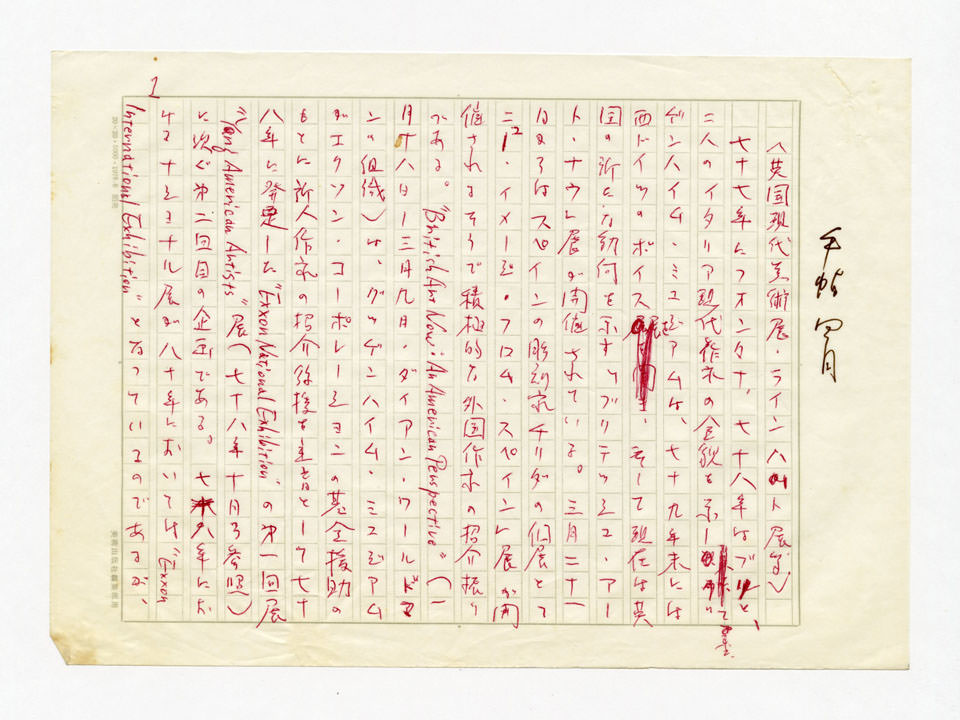 手帖 四月
1
〈英国現代美術展・ラインハルト展など〉
七十七年にフォンタナ、七十八年はブルリと、
二人のイタリア現代作家の全貌を示し
ゲンハイム・ミュージアムは、七十九年末には
西ドイツのボイス展、そして現在は英
国の新たな動向を示す「ブリティッシュ・アー
ト・ナウ」展が開催されている。三月二十一
日よりはスペインの彫刻家チリダの個展と「
ニュー・イメージ・フロム・スペイン」展が開
催されるそうで積極的な外国作家の紹介振り
である。"British Art Now: An American Perspective"(一
月十八日―三月九日・ダイアン・ワールドマ
ンの組織)は、グッゲンハイム・ミュージアム
がエクソン・コーポレーションの基金援助の
もとに新人作家の紹介後援を主旨として七十
八年に発足した"Exxon National Exhibition"の第一回展
"Young American Artists"展(七十八年十月号参照)
に次ぐ第二回目の企画である。七十八年にお
けるナショナル展が八十年においては"Exxon
International Exhibition"となっているのであるが、
20×20=400
美術出版社編集部用